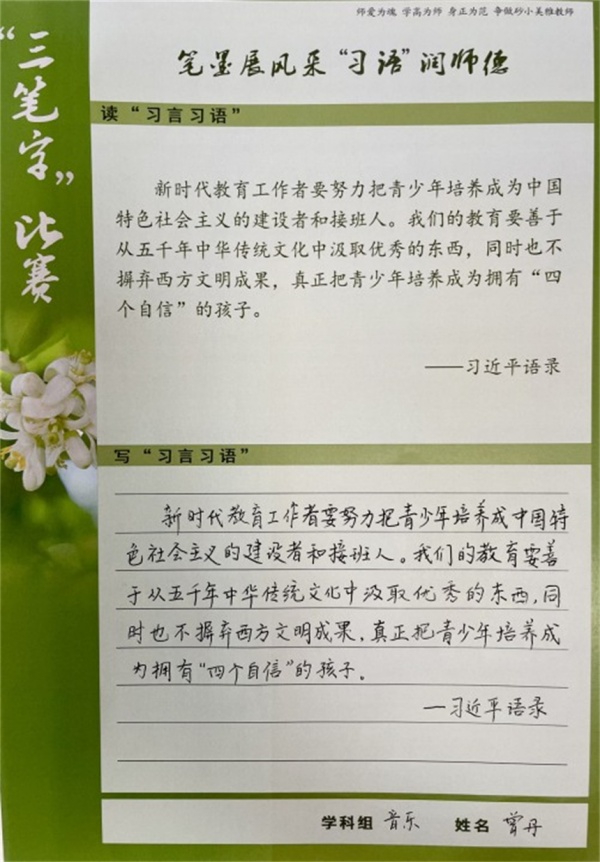 师爱为魂 学高为师 身正为范 争做砂小美雅教师
“三笔字”比赛
笔墨展风采“习语”润师德
读“习言习语”
新时代教育工作者要努力把青少年培养成为中国
特色社会主义的建设者和接班人。我们的教育要善于
从五千年中华传统文化中汲取优秀的东西，同时也不
摒弃西方文明成果，真正把青少年培养成为拥有“四
个自信”的孩子。
——习近平语录
写“习言习语”
新时代教育工作者要努力把青少年培养成中国特
色社会主义的建设者和接班人。我们的教育要善
于从五千年中华传统文化中汲取优秀的东西，同
时也不摒弃西方文明成果，真正把青少年培养成
为拥有“四个自信”的孩子。
—习近平语录
学科组 音乐 姓名 曾丹